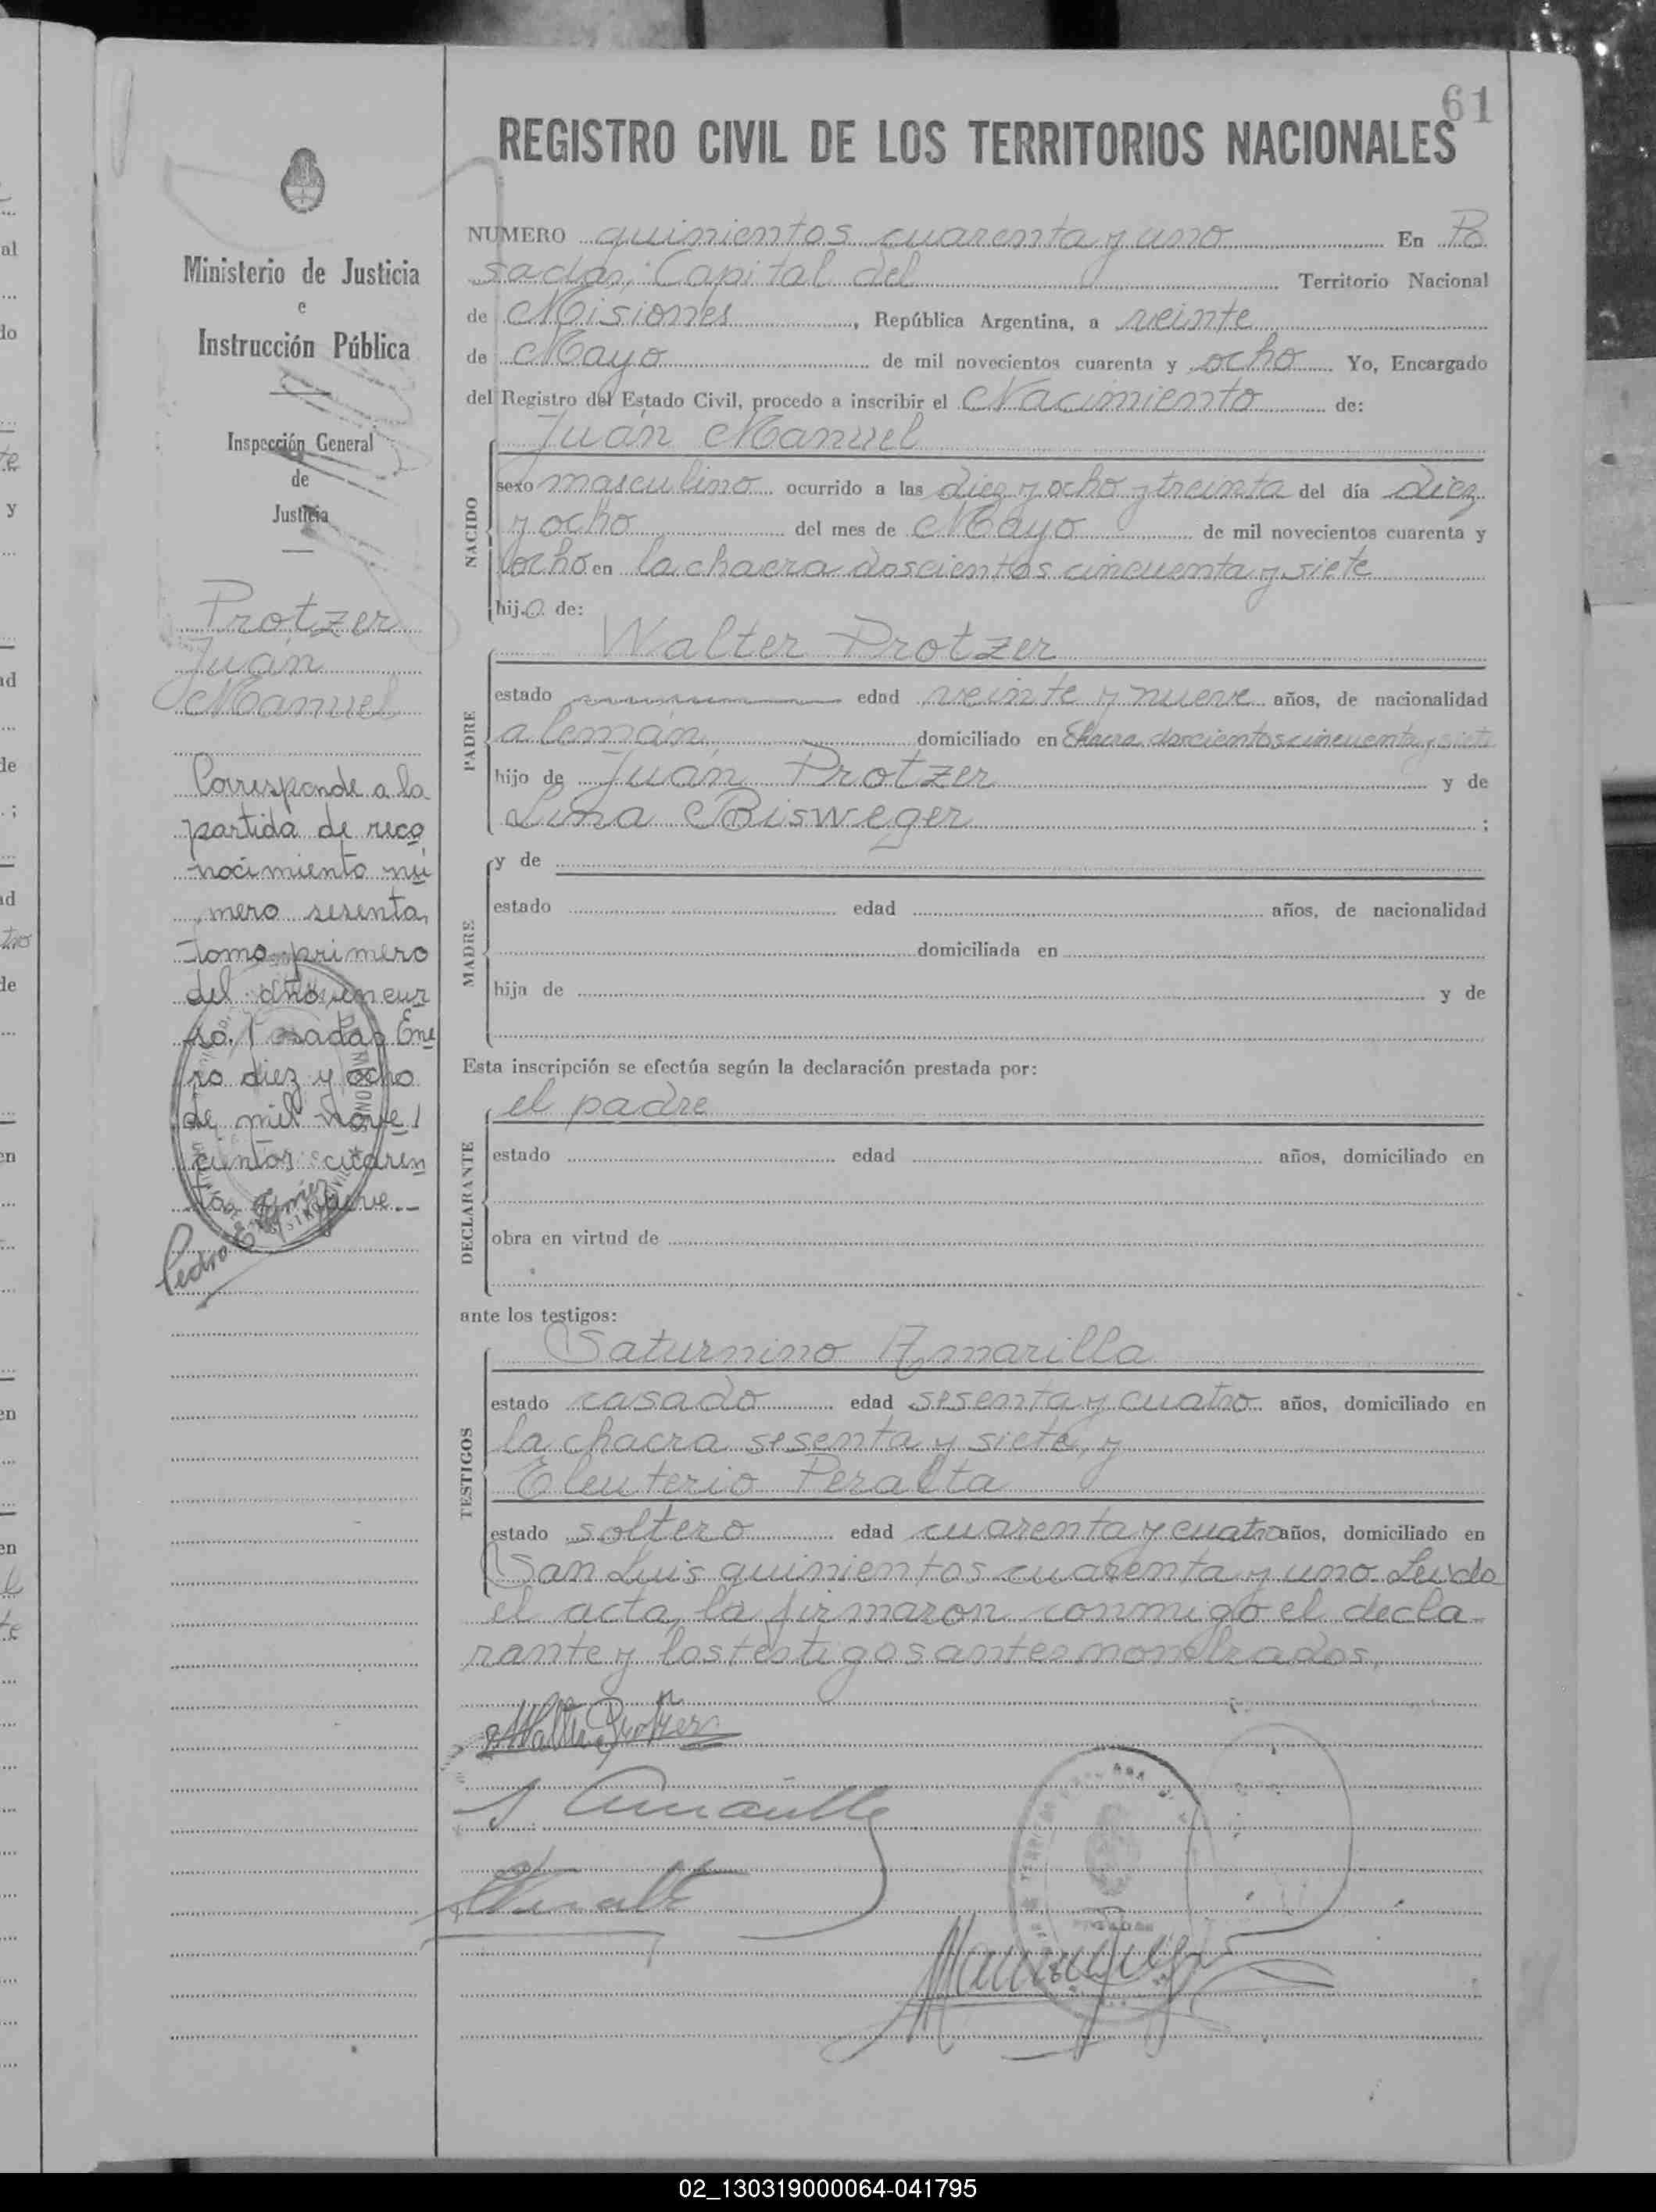 61
REGISTRO CIVIL DE LOS TERRITORIOS NACIONALES
Ministerio de Justicia
e
Instrucción Pública
Inspección General
de
Justicia
Protzer
Juan
Manuel
Corresponde a la
partida de reco
nocimiento nú
mero sesenta,
tomo primero
del año en cur
so. Posadas Ene
ro diez y ocho
de mil nove
cientos cuaren
ta y nueve.--
Pedro E.
NUMERO quinientos cuarenta y uno En Po
sadas, Capital del Territorio Nacional
de Misiones, República Argentina, a veinte
de Mayo de mil novecientos cuarenta y ocho Yo, Encargado
del Registro del Estado Civil, procedo a inscribir el Nacimiento de:
NACIDO
Juan Manuel
sexo masculino ocurrido a las diez y ocho y treinta del día diez
y ocho del mes de Mayo de mil novecientos cuarenta y
ocho en la chacra doscientos cincuenta y siete
hijo de:
PADRE
Walter Protzer
estado edad veinte y nueve años, de nacionalidad
alemán domiciliado en Chacra doscientos cincuenta y siete
hijo de Juan Protzer y de
Lina Bisweger;
MADRE
y de
estado edad años, de nacionalidad
domiciliada en
hija de y de
Esta inscripción se efectúa según la declaración prestada por:
DECLARANTE
el padre
estado edad años, domiciliado en
obra en virtud de
ante los testigos:
TESTIGOS
Saturnino Amarilla
estado casado edad sesenta y cuatro años, domiciliado en
la chacra sesenta y siete, y
Eleuterio Peralta
estado soltero edad cuarenta y cuatro años, domiciliado en
San Luis quinientos cuarenta y uno. Leida
el acta, la firmaron conmigo el decla
rante y los testigos antes nombrados.
Walter Protzer
S. Amarilla
02_130319000064-041795